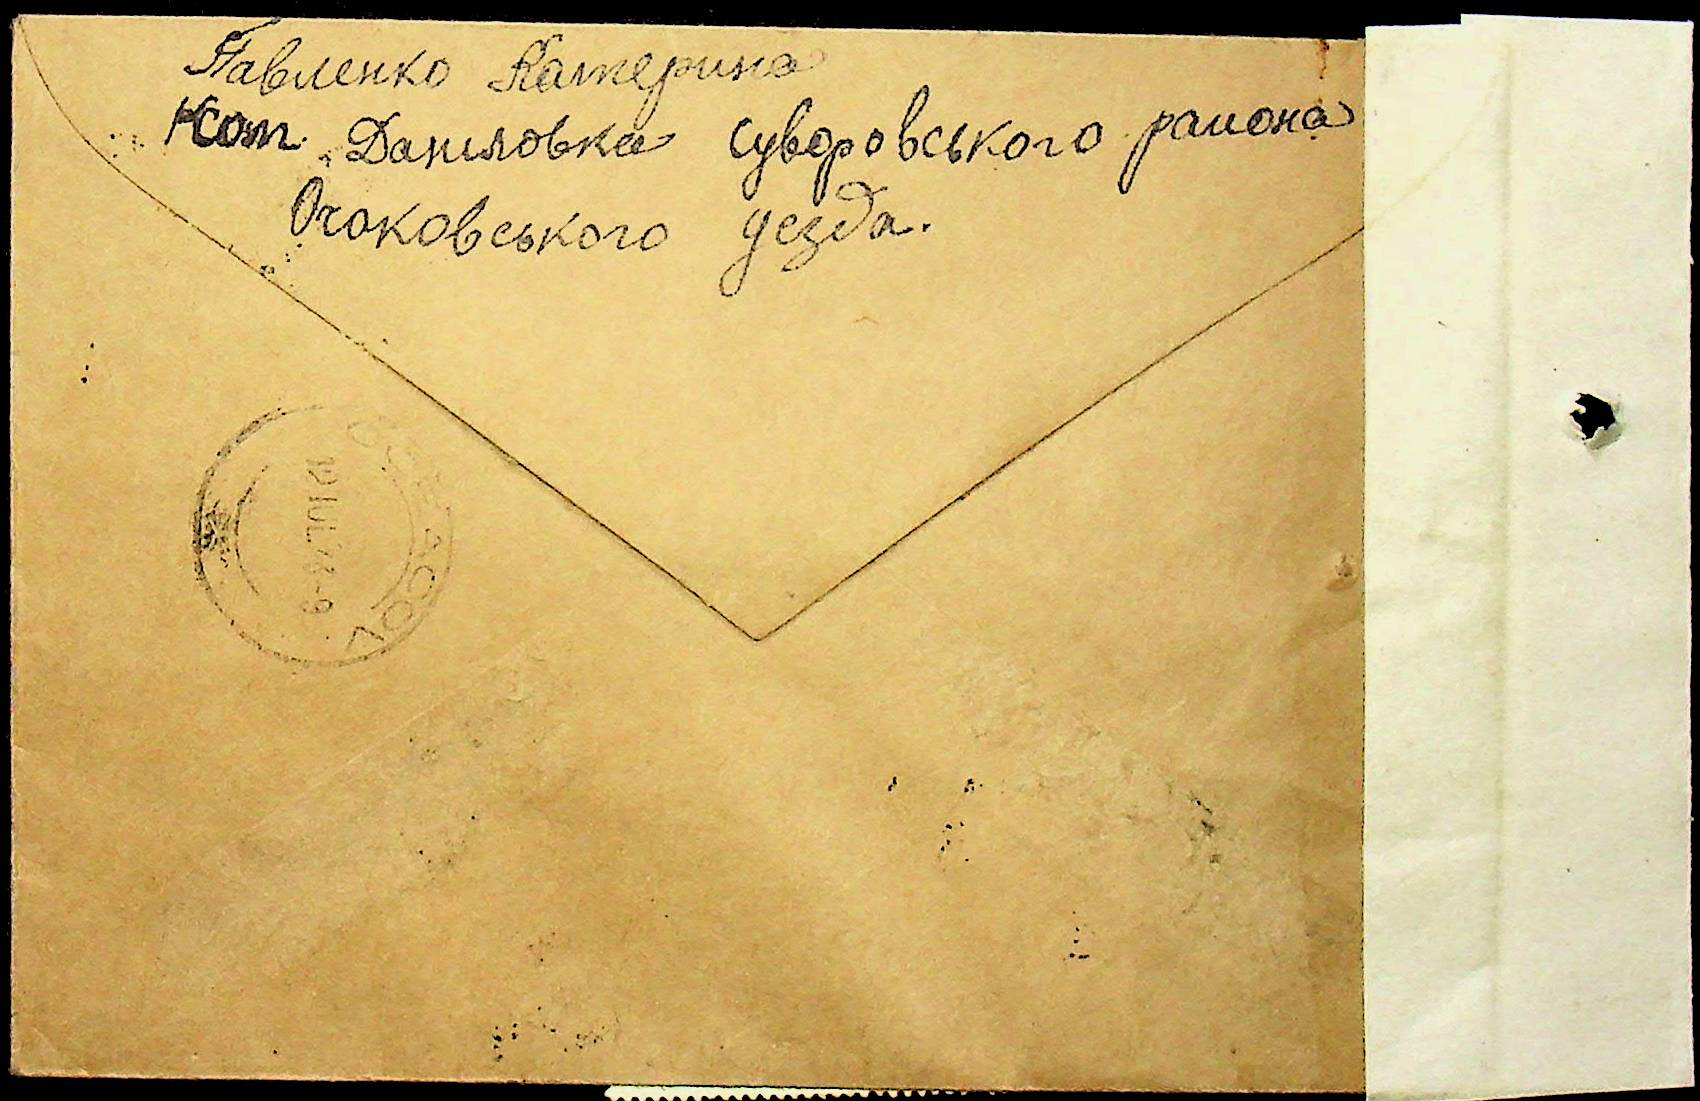 Павленко Катерина
Кот. Даниловка Суворовського района
Очоковського уезда.
12 IUL